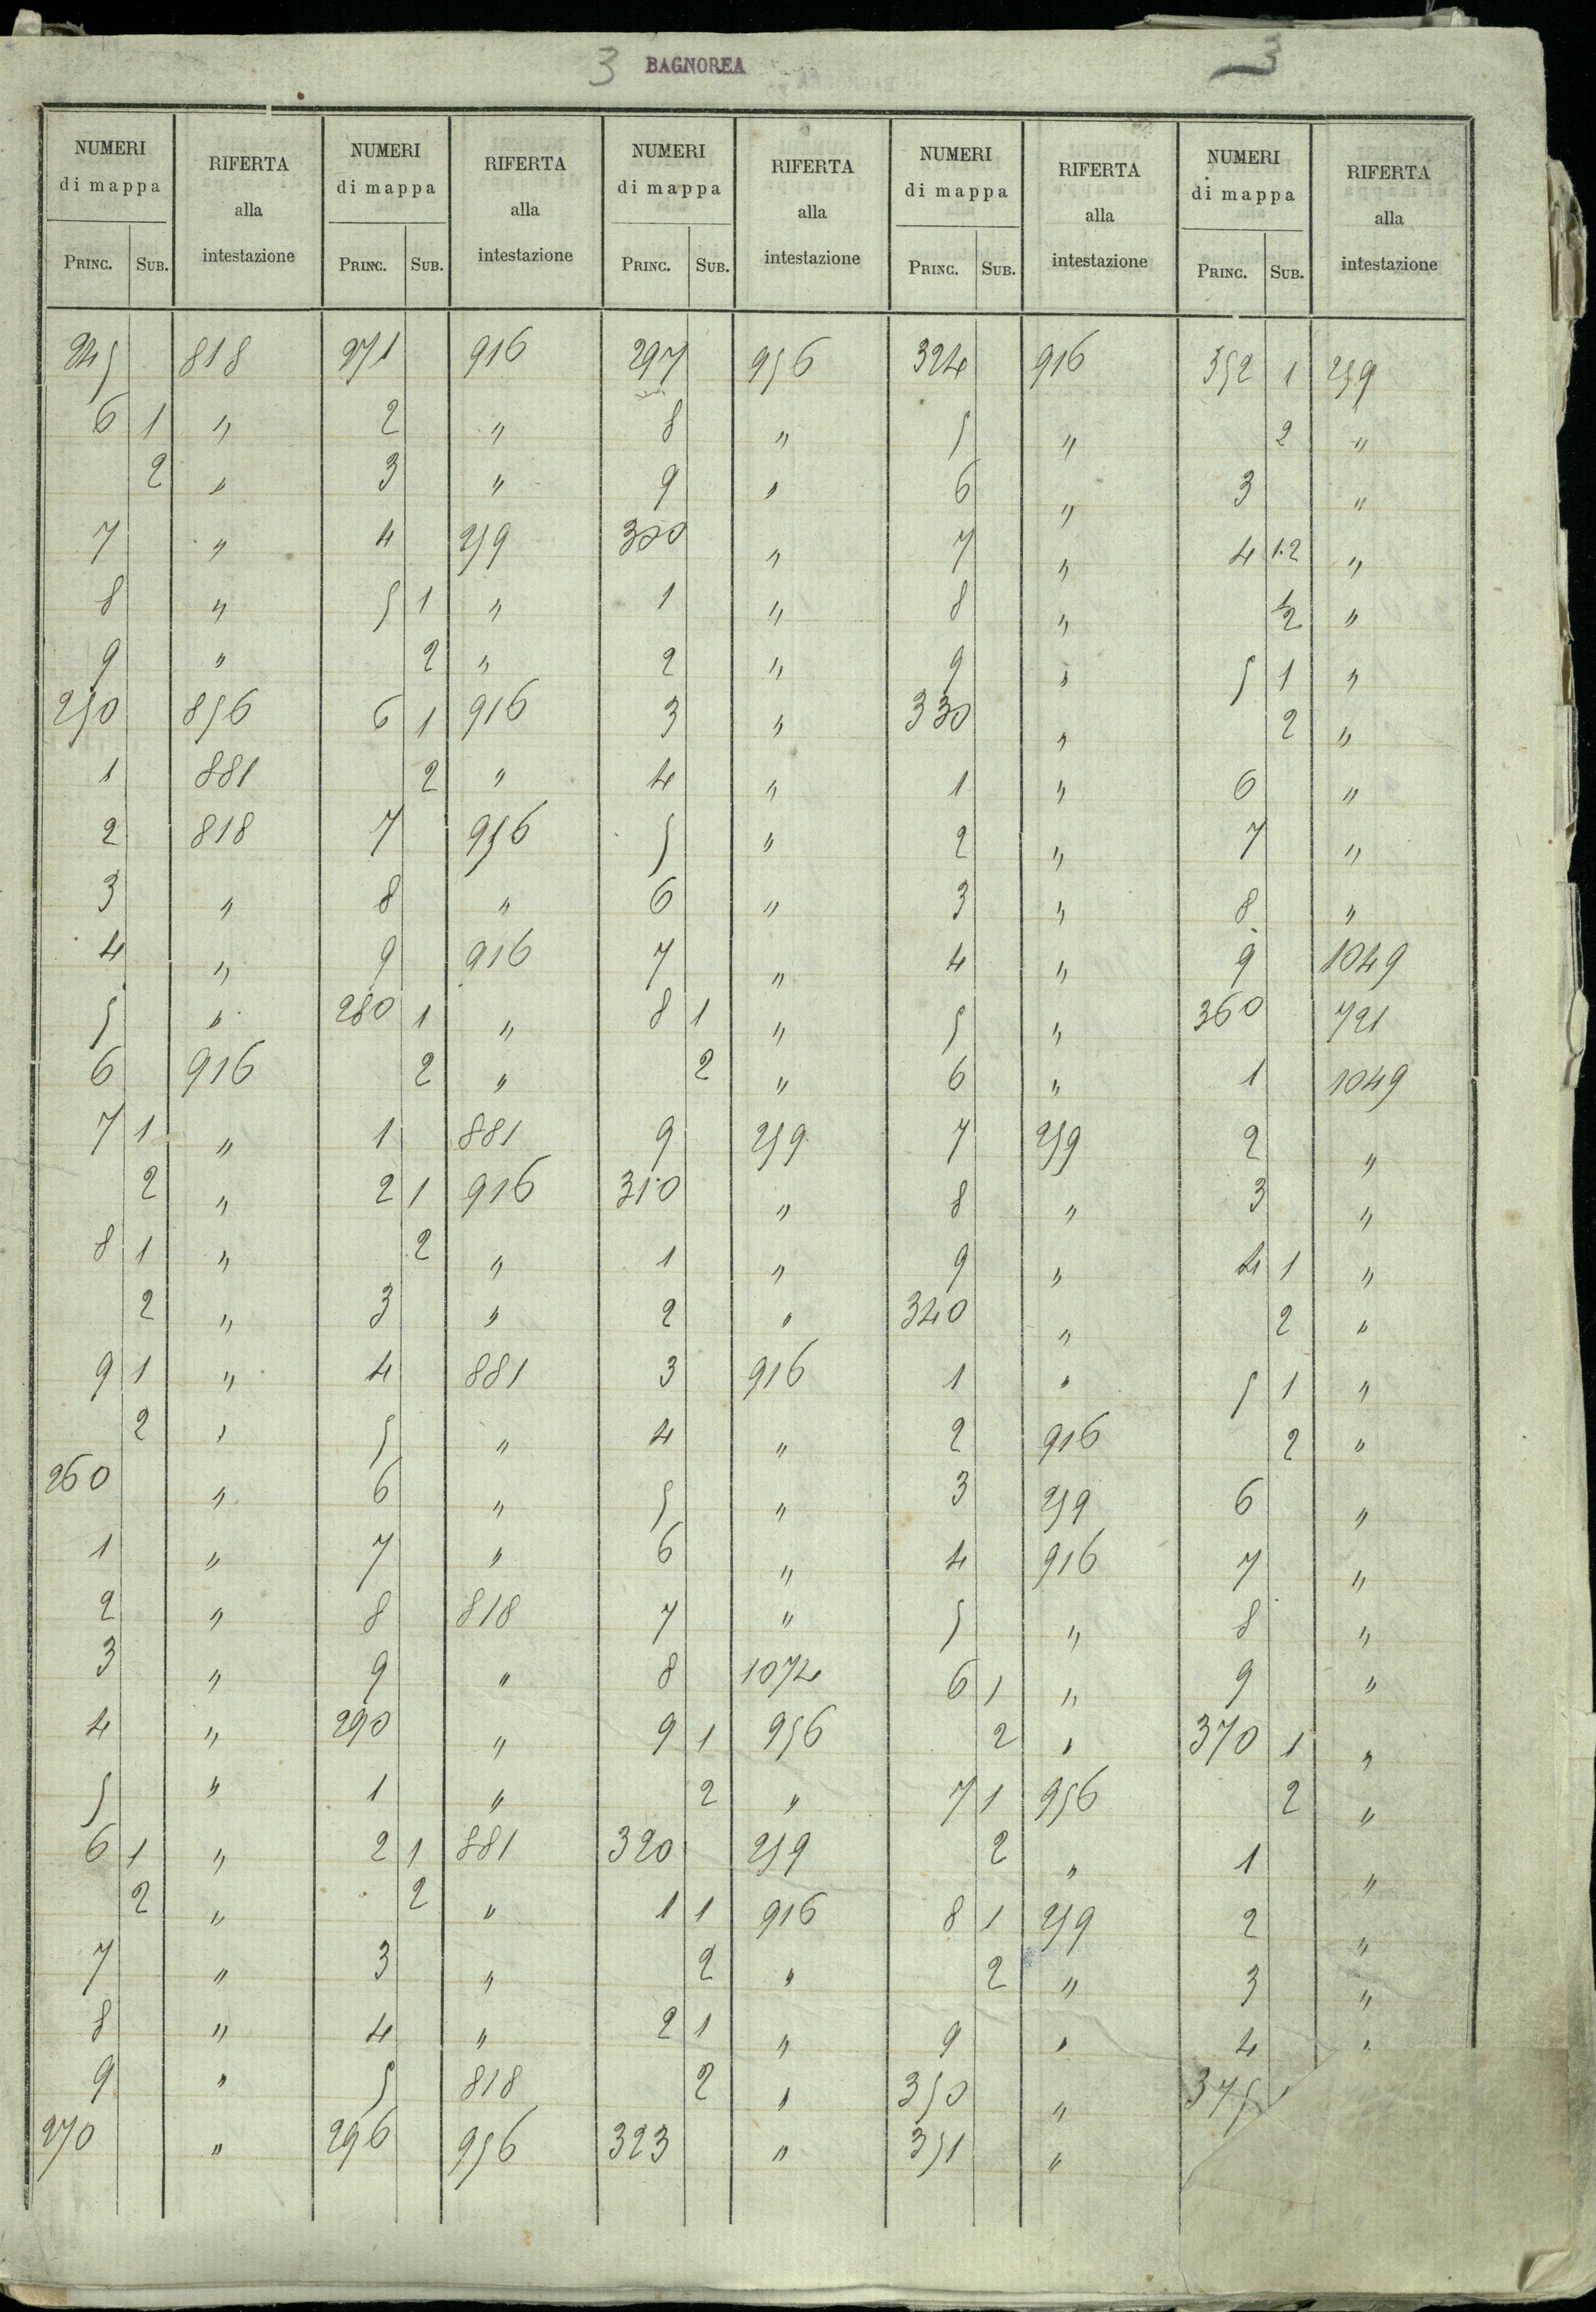 3 BAGNOREA 3
NUMERI di mappa RIFERTA alla intestazione NUMERI di mappa RIFERTA alla intestazione NUMERI di mappa RIFERTA alla intestazione NUMERI di mappa RIFERTA alla intestazione NUMERI di mappa RIFERTA alla intestazione
PRINC. SUB. PRINC. SUB. PRINC. SUB. PRINC. SUB. PRINC. SUB.
245 818 271 916 297 956 324 916 352 1 259
6 1 " 2 " 8 " 5 " 2 "
2 " 3 " 9 " 6 " 3 "
7 " 4 259 300 " 7 " 4 1.2 "
8 " 5 1 " 1 " 8 " 2 "
9 " 2 " 2 " 9 " 5 1 "
250 856 6 1 916 3 " 330 " 2 "
1 881 2 " 4 " 1 " 6 "
2 818 7 956 5 " 2 " 7 "
3 " 8 " 6 " 3 " 8 "
4 " 9 916 7 " 4 " 9 1049
5 " 280 1 " 8 1 " 5 " 360 721
6 916 2 " 2 " 6 " 1 1049
7 1 " 1 881 9 259 7 259 2 "
2 " 2 1 916 310 " 8 " 3 "
8 1 " 2 " 1 " 9 " 4 1 "
2 " 3 " 2 " 340 " 2 "
9 1 " 4 881 3 916 1 " 5 1 "
2 " 5 " 4 " 2 916 2 "
260 " 6 " 5 " 3 259 6 "
1 " 7 " 6 " 4 916 7 "
2 " 8 818 7 " 5 " 8 "
3 " 9 " 8 1074 6 1 " 9 "
4 " 290 " 9 1 956 2 " 370 1 "
5 " 1 " 2 " 7 1 956 2 "
6 1 " 2 1 881 320 259 2 " 1 "
2 " 2 " 1 1 916 8 1 259 2 "
7 " 3 " 2 " 2 " 3 "
8 " 4 " 2 1 " 9 " 4 "
9 " 5 818 2 " 350 " 375
270 " 296 956 323 " 351 "